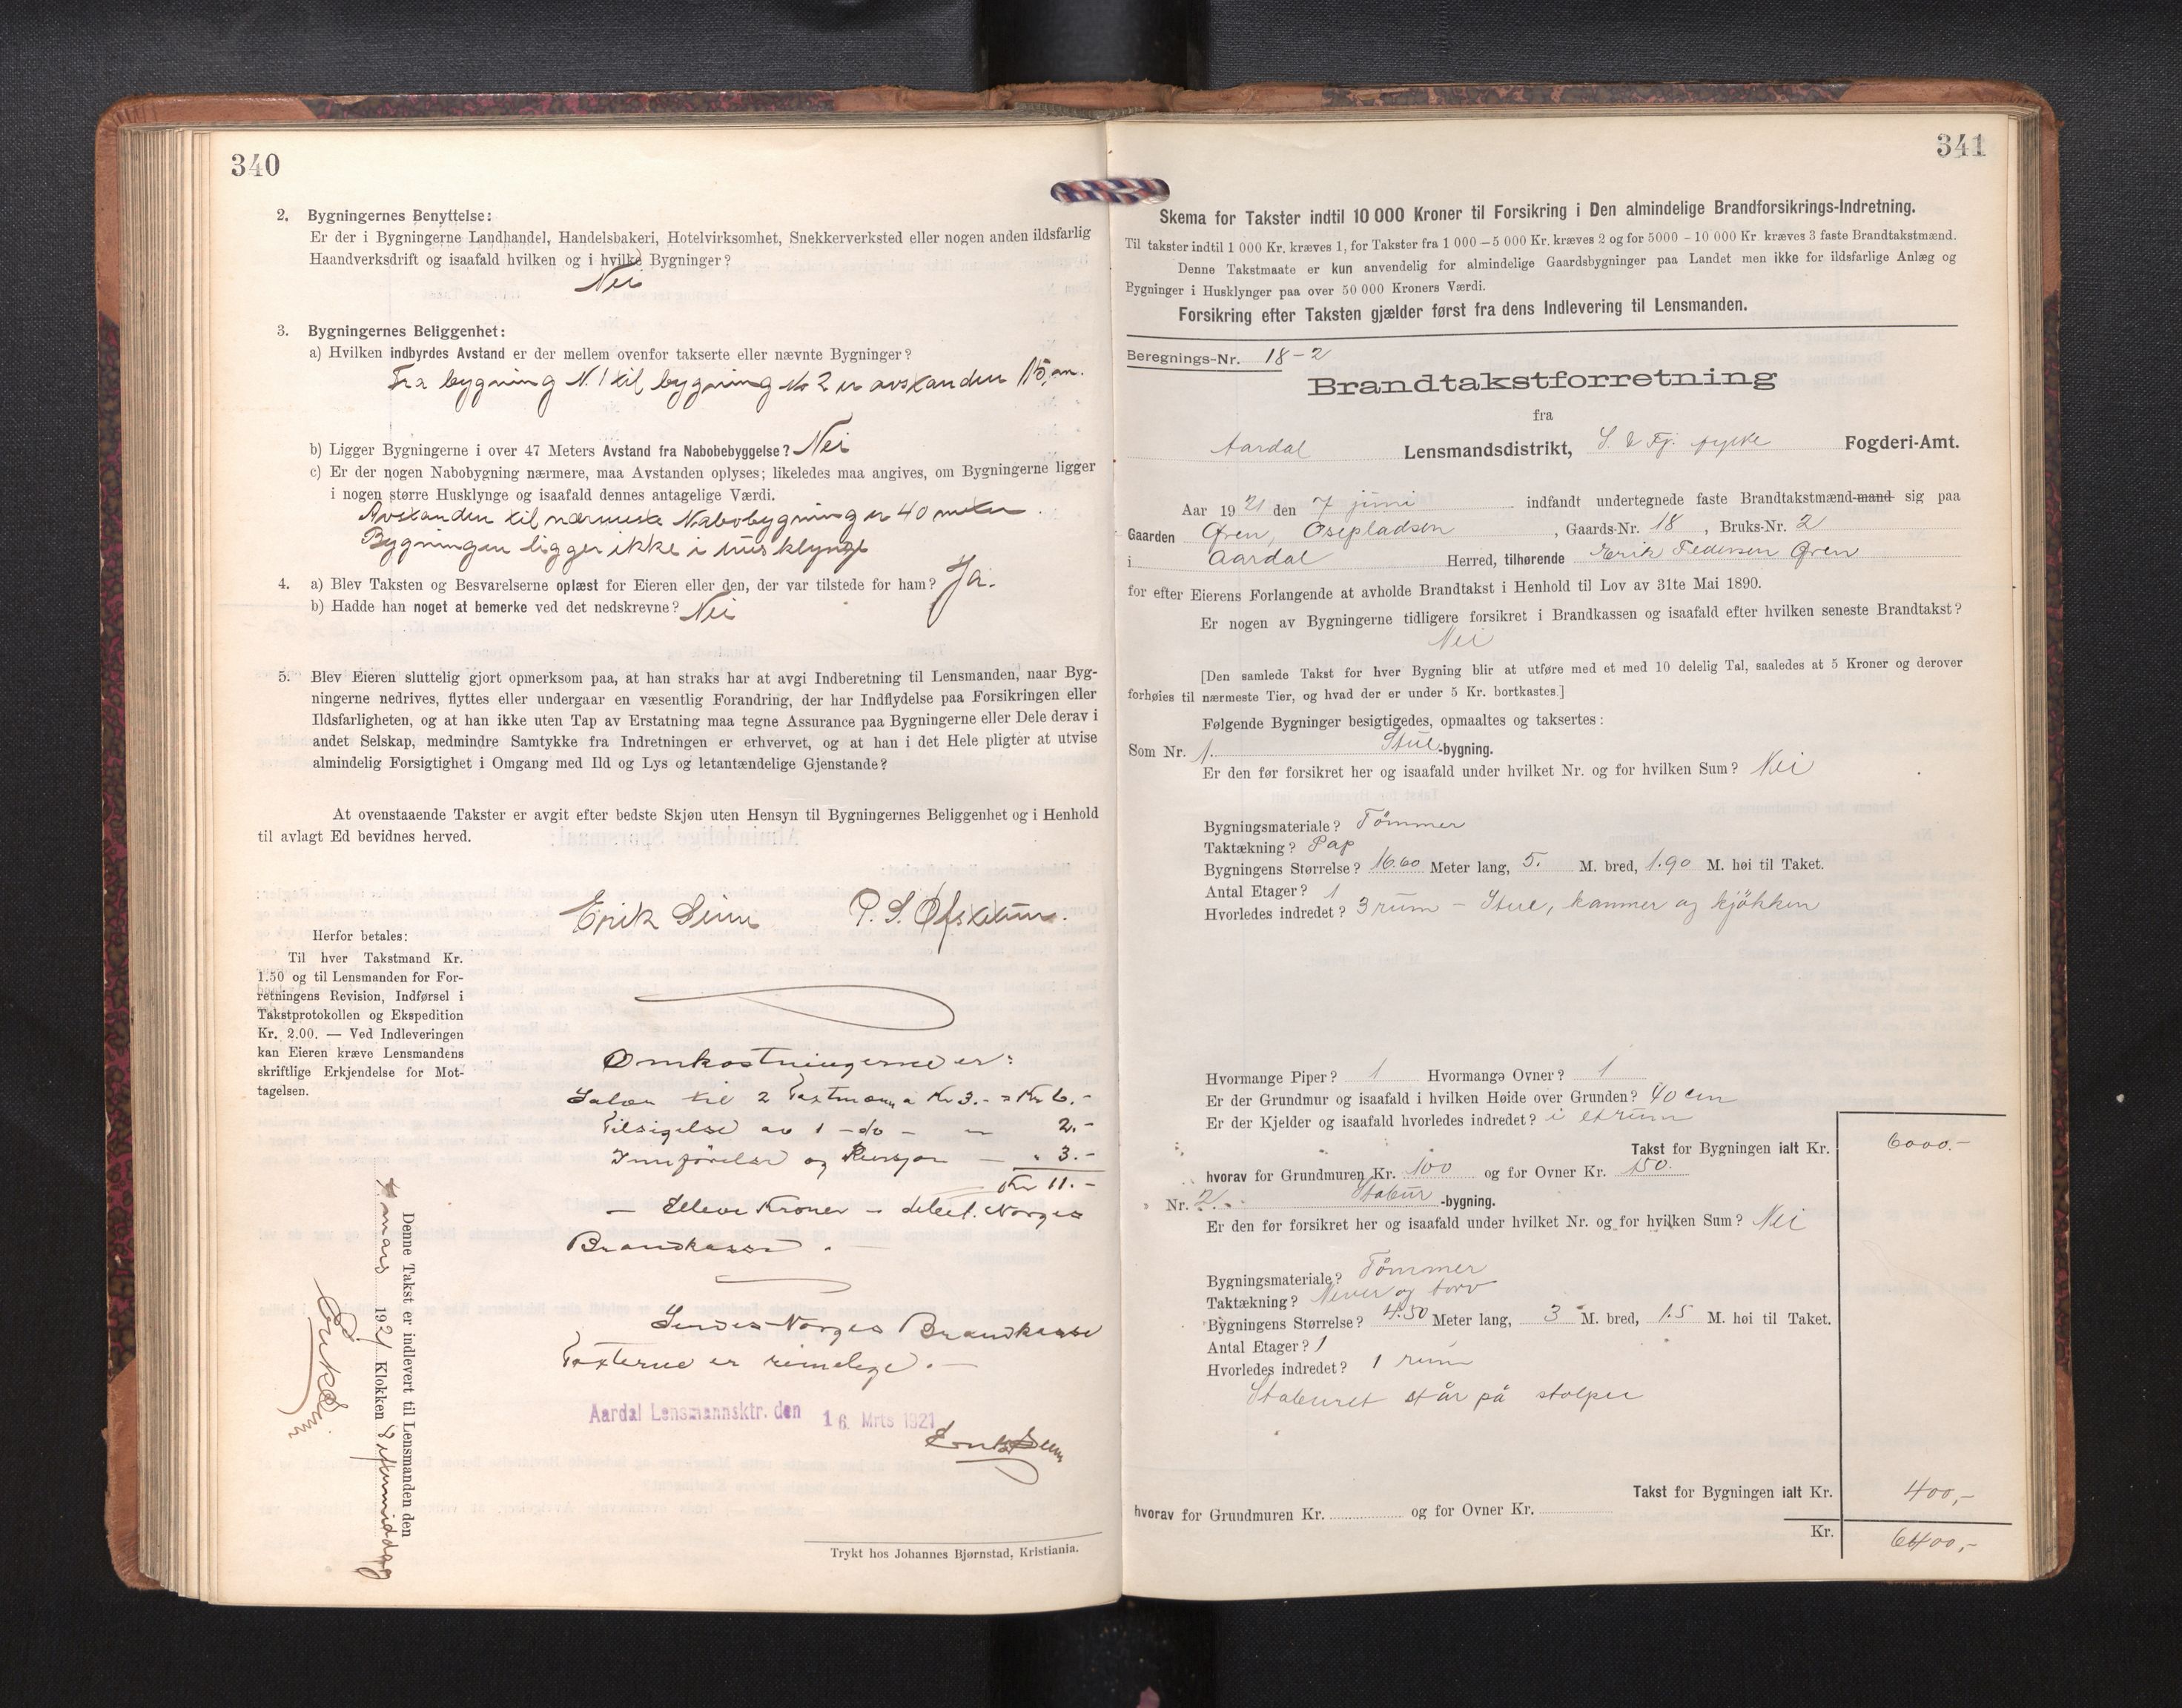 340
2. Bygningernes Benyttelse:
Er der i Bygningerne Landhandel, Handelsbakeri, Hotelvirksomhet, Snekkerverksted eller nogen anden ildsfarlig
Haandverksdrift og isaafald hvilken og i hvilke Bygninger?
Nei
3. Bygningernes Beliggenhet:
a) Hvilken indbyrdes Avstand er der mellem ovenfor takserte eller nævnte Bygninger?
Fra bygning N. 1 til bygning No 2 er avstanden m.
b) Ligger Bygningerne i over 47 Meters Avstand fra Nabobebyggelse? Nei
c) Er der nogen Nabobygning nærmere, maa Avstanden oplyses; likeledes maa angives, om Bygningerne ligger
i nogen større Husklynge og isaafald dennes antagelige Værdi.
Avstanden til nærmeste Nabobygning er 40 meter.
Bygningen ligger ikke i husklynge
4. a) Blev Taksten og Besvarelserne oplæst for Eieren eller den, der var tilstede for ham? Ja.
b) Hadde han noget at bemerke ved det nedskrevne? Nei
5. Blev Eieren sluttelig gjort opmerksom paa, at han straks har at avgi Indberetning til Lensmanden, naar Byg-
ningerne nedrives, flyttes eller undergaar en væsentlig Forandring, der har Indflydelse paa Forsikringen eller
Ildsfarligheten, og at han ikke uten Tap av Erstatning maa tegne Assurance paa Bygningerne eller Dele derav i
andet Selskap, medmindre Samtykke fra Indretningen er erhvervet, og at han i det Hele pligter at utvise
almindelig Forsigtighet i Omgang med Ild og Lys og letantændelige Gjenstande?
At ovenstaaende Takster er avgit efter bedste Skjøn uten Hensyn til Bygningernes Beliggenhet og i Henhold
til avlagt Ed bevidnes herved.
Erik Seim P. S. Øfstetun.
Herfor betales:
Til hver Takstmand Kr.
1.50 og til Lensmanden for For-
retningens Revision, Indførsel i
Takstprotokollen og Ekspedition
Kr. 2.00. — Ved Indleveringen
kan Eieren kræve Lensmandens
skriftlige Erkjendelse for Mot-
tagelsen.
Omkostningerne er:
til 2 Taxtmænn a Kr 3.- = Kr 6.-
Tilsigelse av 1 -do- - 2.-
Innførelse og Revisjon - " 3.-
Kr 11.-
- Elleve Kroner - debet. Norges
Brandkasse.
Sendes Norges Brandkasse
Taxterne er rimelige. -
Aardal Lensmannsktr. den 16 Mrts 1921
Erik Seim
Denne Takst er indlevert til Lensmanden den
mars 1921 Klokken 8 eftermiddag
Erik Seim
Trykt hos Johannes Bjørnstad, Kristiania.
341
Skema for Takster indtil 10 000 Kroner til Forsikring i Den almindelige Brandforsikrings-Indretning.
Til takster indtil 1 000 Kr. kræves 1, for Takster fra 1 000 – 5 000 Kr. kræves 2 og for 5000 – 10 000 Kr kræves 3 faste Brandtakstmænd.
Denne Takstmaate er kun anvendelig for almindelige Gaardsbygninger paa Landet men ikke for ildsfarlige Anlæg og
Bygninger i Husklynger paa over 50 000 Kroners Værdi.
Forsikring efter Taksten gjælder først fra dens Indlevering til Lensmanden.
Beregnings-Nr. 18-2
Brandtakstforretning
fra
Aardal Lensmandsdistrikt, S. & Fj. fylke Fogderi-Amt.
Aar 1921 den 7 juni indfandt undertegnede faste Brandtakstmænd-mand sig paa
Gaarden Øren, Osepladsen, Gaards-Nr. 18, Bruks-Nr. 2
i Aardal Herred, tilhørende Erik Pedersen Øren
for efter Eierens Forlangende at avholde Brandtakst i Henhold til Lov av 31te Mai 1890.
Er nogen av Bygningerne tidligere forsikret i Brandkassen og isaafald efter hvilken seneste Brandtakst?
Nei
[Den samlede Takst for hver Bygning blir at utføre med et med 10 delelig Tal, saaledes at 5 Kroner og derover
forhøies til nærmeste Tier, og hvad der er under 5 Kr. bortkastes.]
Følgende Bygninger besigtigedes, opmaaltes og taksertes:
Som Nr. 1. Stue-bygning.
Er den før forsikret her og isaafald under hvilket Nr. og for hvilken Sum? Nei
Bygningsmateriale? Tömmer
Taktækning? Pap
Bygningens Størrelse? 16.60 Meter lang, 5. M. bred, 1.90 M. høi til Taket.
Antal Etager? 1
Hvorledes indredet? 3 rum - Stue, kammer og kjökken
Hvormange Piper? 1 Hvormange Ovner? 1
Er der Grundmur og isaafald i hvilken Høide over Grunden? 40 cm
Er der Kjelder og isaafald hvorledes indredet? i et rum
Takst for Bygningen ialt Kr. 6000.-
hvorav for Grundmuren Kr. 100 og for Ovner Kr. 150.
Nr. 2. Stabur-bygning.
Er den før forsikret her og isaafald under hvilket Nr. og for hvilken Sum? Nei
Bygningsmateriale? Tömmer
Taktækning? Never og torv
Bygningens Størrelse? 4.50 Meter lang, 3 M. bred, 1.5 M. høi til Taket.
Antal Etager? 1
Hvorledes indredet? 1 rum
Staburet står på stolper
Takst for Bygningen ialt Kr. 400,-
hvorav for Grundmuren Kr. og for Ovner Kr.
Kr. 6400,-